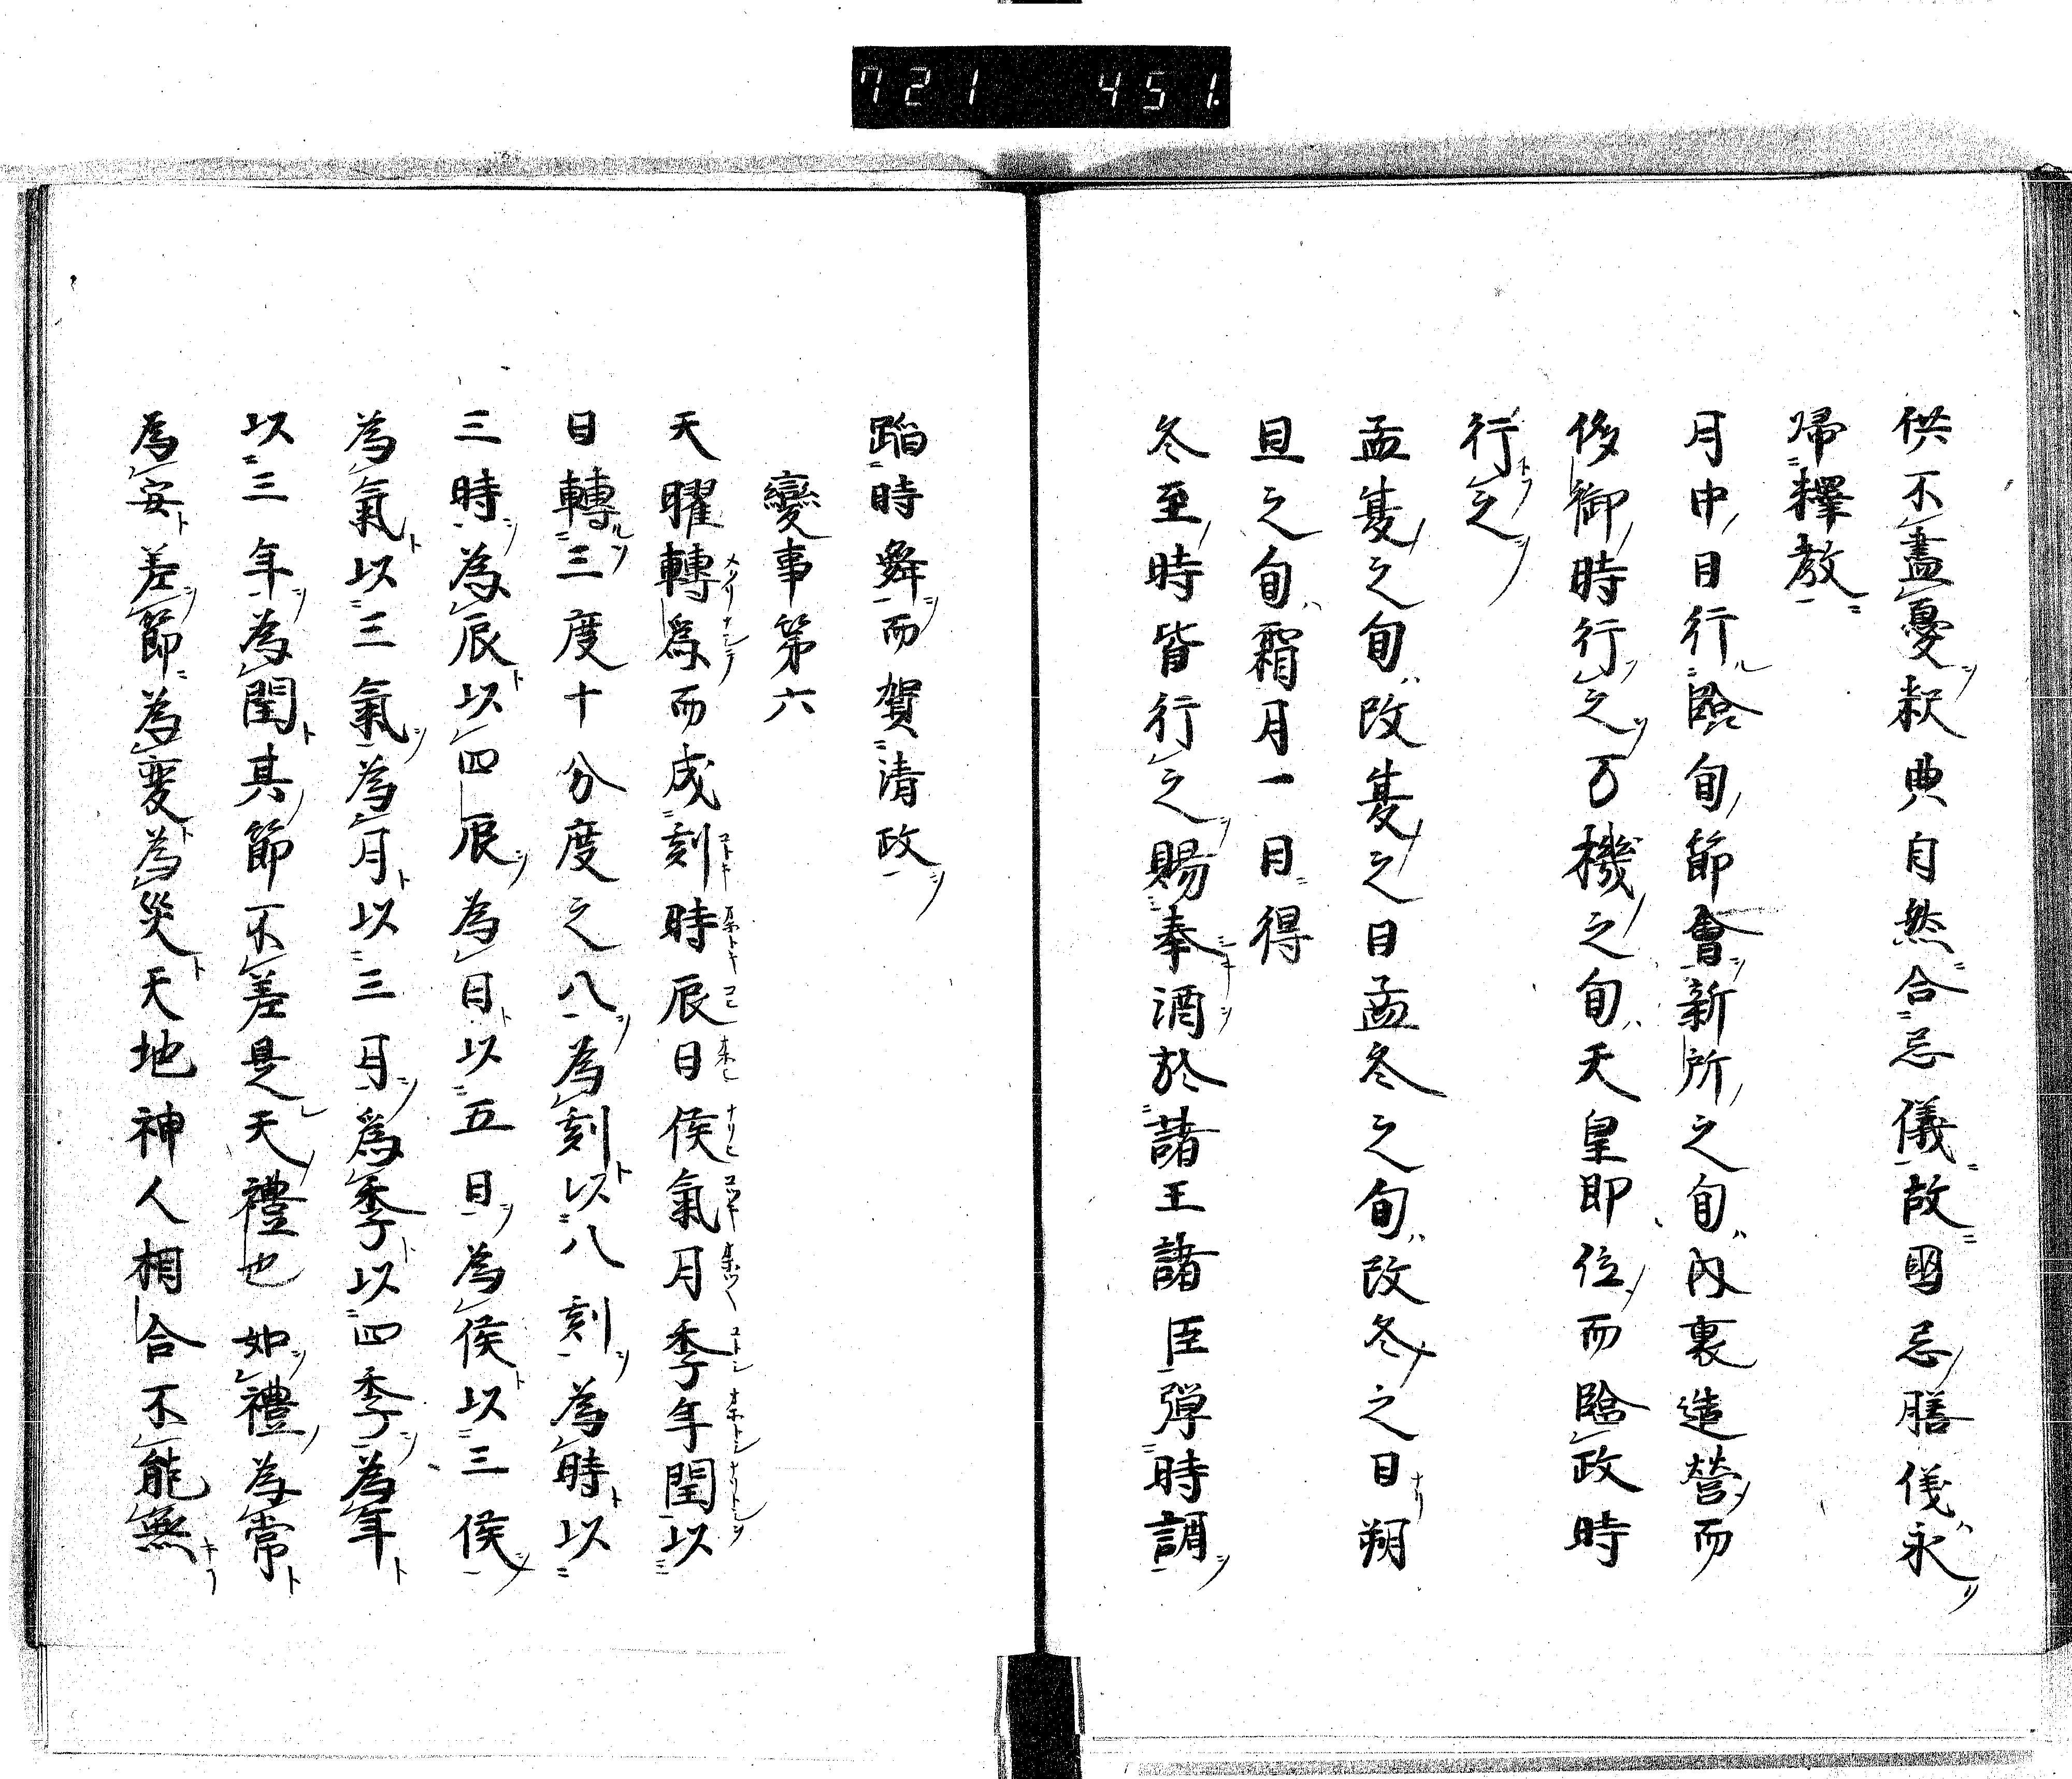 721 451.
供不盡憂釈典自然合忌儀故國忌膳儀永
帰釋教
月中日行臨旬節會新所之旬內裏造營而
移御時行之万機之旬天皇即位而臨政時
行之
孟夏之旬改夏之日孟冬之旬改冬之日朔
旦之旬霜月一日得
冬至時皆行之賜奉酒於諸王諸臣彈時調
蹈時舞而賀清政
變事第六
天曜轉爲而成刻時辰日侯氣月季年閏以
日轉三度十分度之八為刻以八刻為時以
三時為辰以四辰為日以五日為侯以三侯
為氣以三氣為月以三月爲季以四季為年
以三年為閏其節不差是天禮也如禮為常
為安差節為変為災天地神人相合不能無